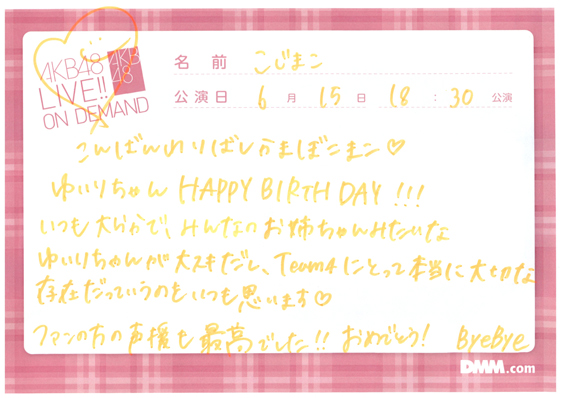 AKB48
LIVE!!
ON DEMAND
AKB
48
名前 こじまこ
公演日 6月 15日 18:30 公演
こんばんわりばしかまぼこまこ♡
ゆいりちゃん HAPPY BIRTHDAY!!!
いつも大らかで、みんなのお姉ちゃんみたいな
ゆいりちゃんが大スキだし、Team4にとって本当に大切な
存在だっていうのをいつも思います♡
ファンの方の声援も最高でした!! おめでとう! ByeBye
DMM.com